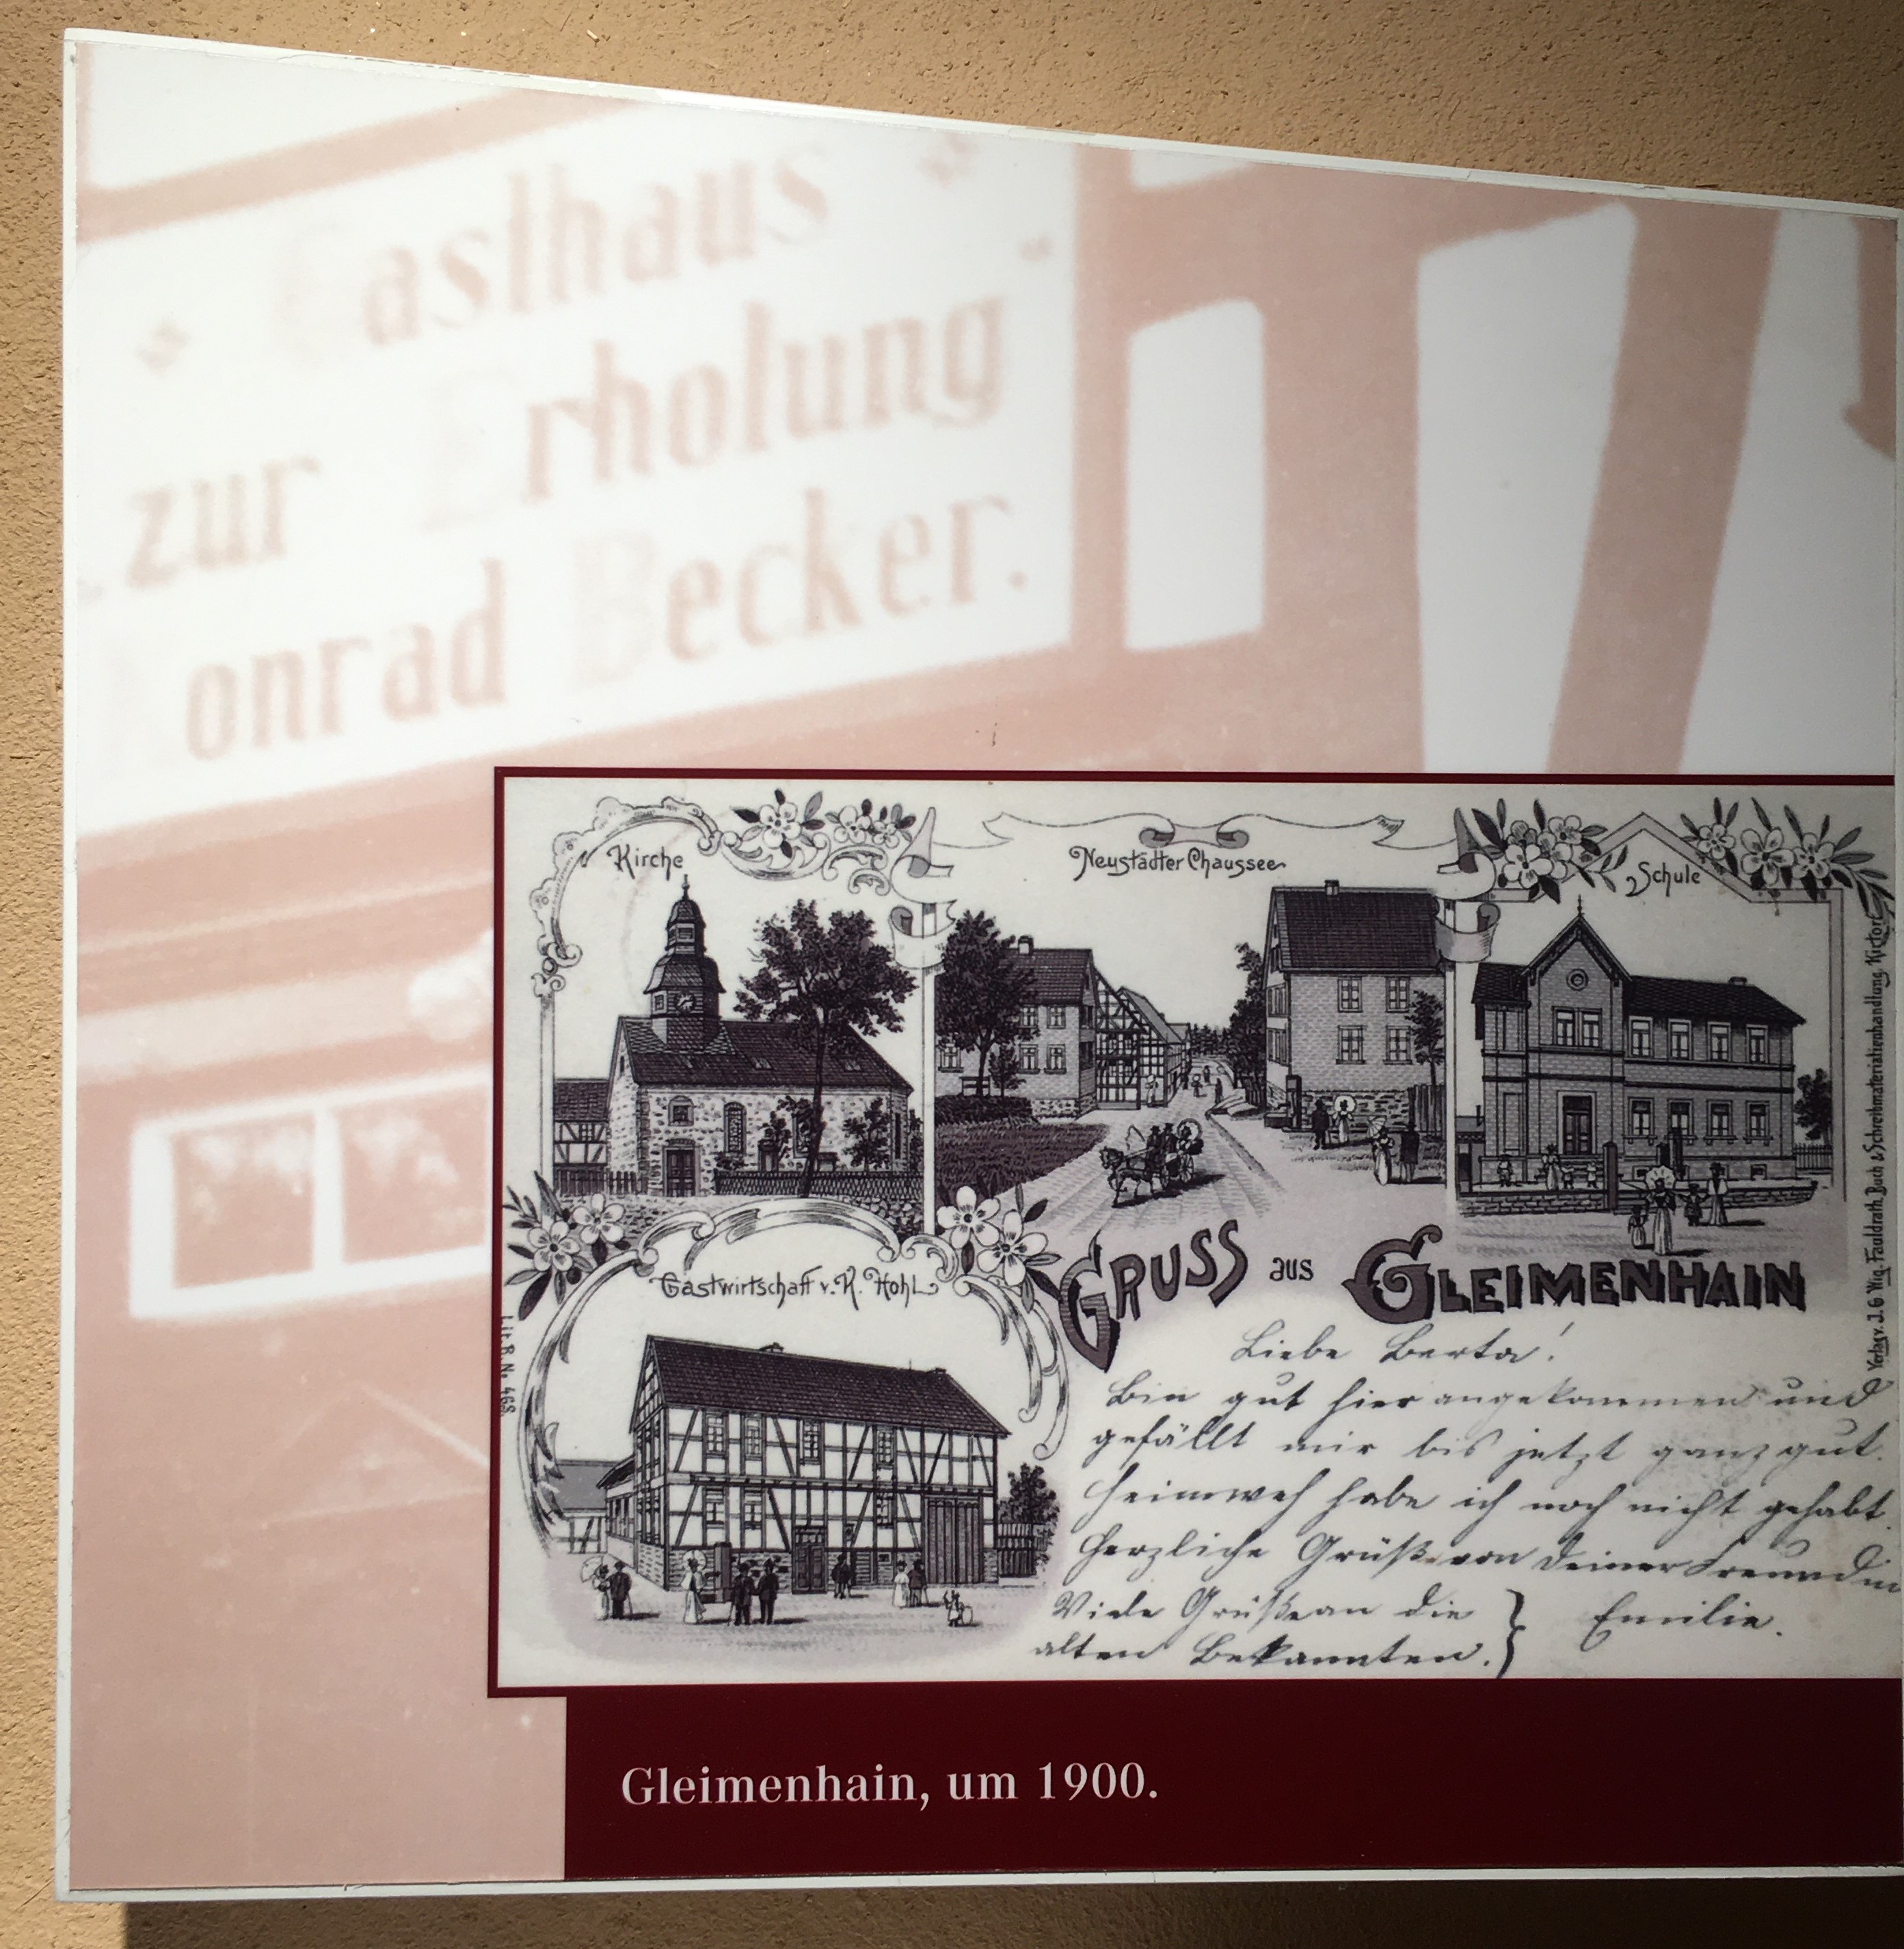 Gasthaus
zur Erholung
Konrad Becker.
Kirche
Neustädter Chaussee
Schule
Gastwirtschaft v. K. Hohl
GRUSS aus GLEIMENHAIN
Liebe Berta!
Bin gut hier angekommen und
gefällt mir bis jetzt ganz gut.
Heimweh habe ich noch nicht gehabt.
Herzliche Grüße von deiner Freundin
Viele Grüße an die
alten Bekannten. } Emilie.
Verlag v. J. G. Wig. Fauldrath, Buch & Schreibmaterialienhandlung,
Gleimenhain, um 1900.